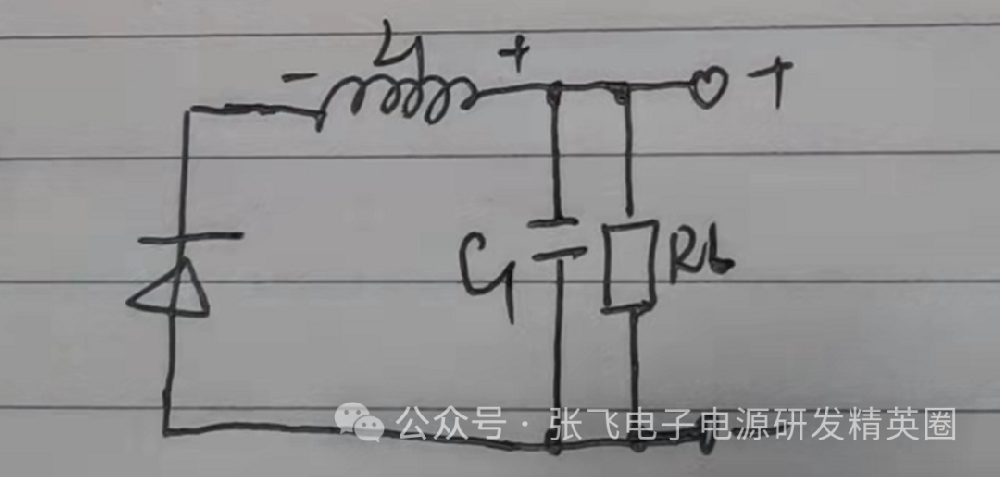 L1
- +
+
C1
Rb
公众号 · 张飞电子电源研发精英圈